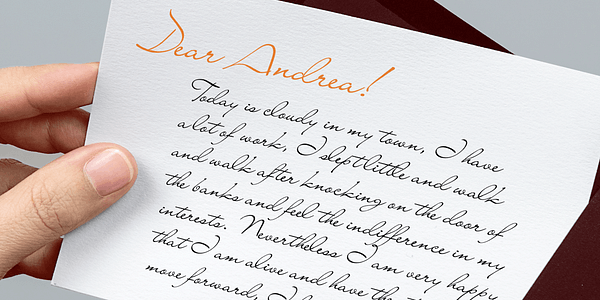 Dear Andrea!
Today is cloudy in my town, I have
a lot of work, I slept little and walk
and walk after knocking on the door of
the banks and feel the indifference in my
interests. Nevertheless I am very happy
that I am alive and have the
move forward, I